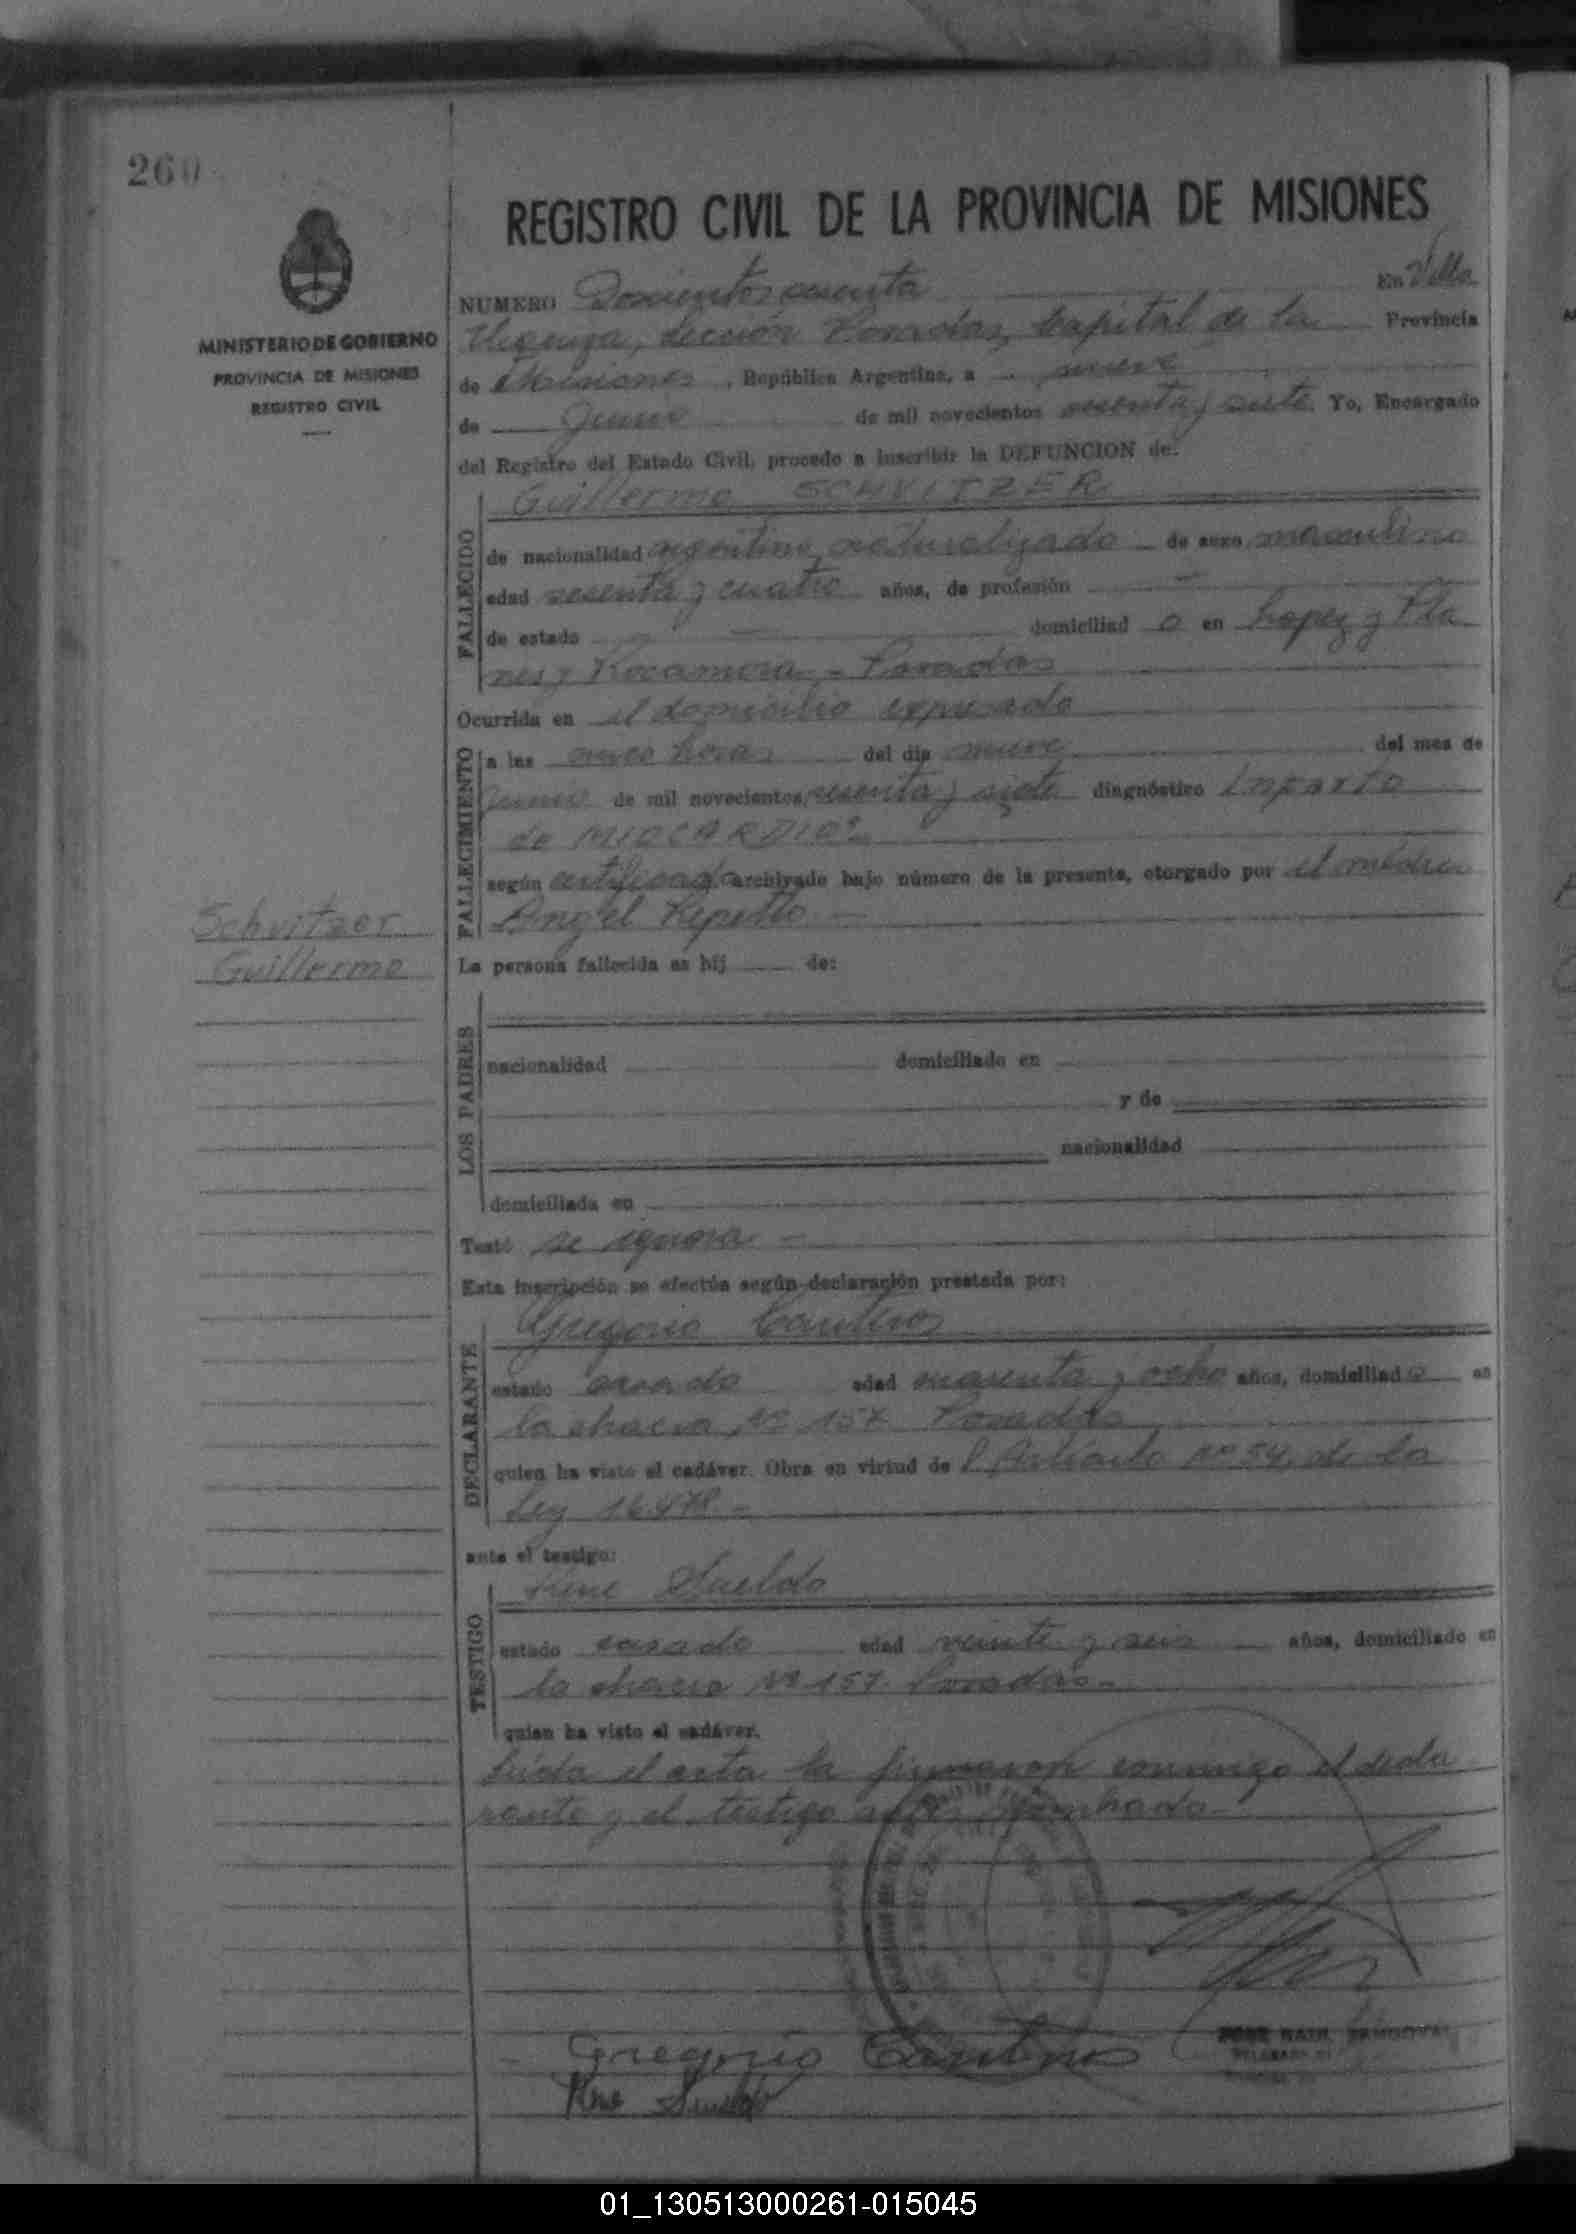 260
REGISTRO CIVIL DE LA PROVINCIA DE MISIONES
MINISTERIO DE GOBIERNO
PROVINCIA DE MISIONES
REGISTRO CIVIL
NUMERO Doscientos sesenta En Villa
Urquiza, Sección Posadas, Capital de la Provincia
de Misiones, República Argentina, a nueve
de Junio de mil novecientos sesenta y siete. Yo, Encargado
del Registro del Estado Civil, procedo a inscribir la DEFUNCION de:
FALLECIDO
Guillermo SCHVITZER
de nacionalidad argentino naturalizado de sexo masculino
edad sesenta y cuatro años, de profesión —
de estado — domiciliad o en Lopez y Pla
nes y Rocamora - Posadas
Ocurrida en el domicilio expresado
FALLECIMIENTO
a las horas del día nueve del mes de
junio de mil novecientos sesenta y siete diagnóstico Infarto
de MIOCARDIO
según certificado archivado bajo número de la presente, otorgado por el médico
Angel Repetto -
Schvitzer
Guillermo
La persona fallecida es hij de:
LOS PADRES
nacionalidad domiciliado en
y de
nacionalidad
domiciliada en
Testó se ignora -
Esta inscripción se efectúa según declaración prestada por:
DECLARANTE
Gregorio Canteros
estado casado edad cuarenta y ocho años, domiciliad o en
la chacra Nº 157 Posadas
quien ha visto el cadáver. Obra en virtud de l Artículo Nº 54 de la
Ley 16.478 -
ante el testigo:
TESTIGO
Rene Sueldo
estado casado edad veinte y seis años, domiciliado en
la chacra Nº 157. Posadas -
quien ha visto el cadáver.
Leída el acta la firmaron conmigo el decla
rante y el testigo nombrado -
Gregorio Canteros
Rene Sueldo
JOSE RAUL SANDOVAL
01_130513000261-015045